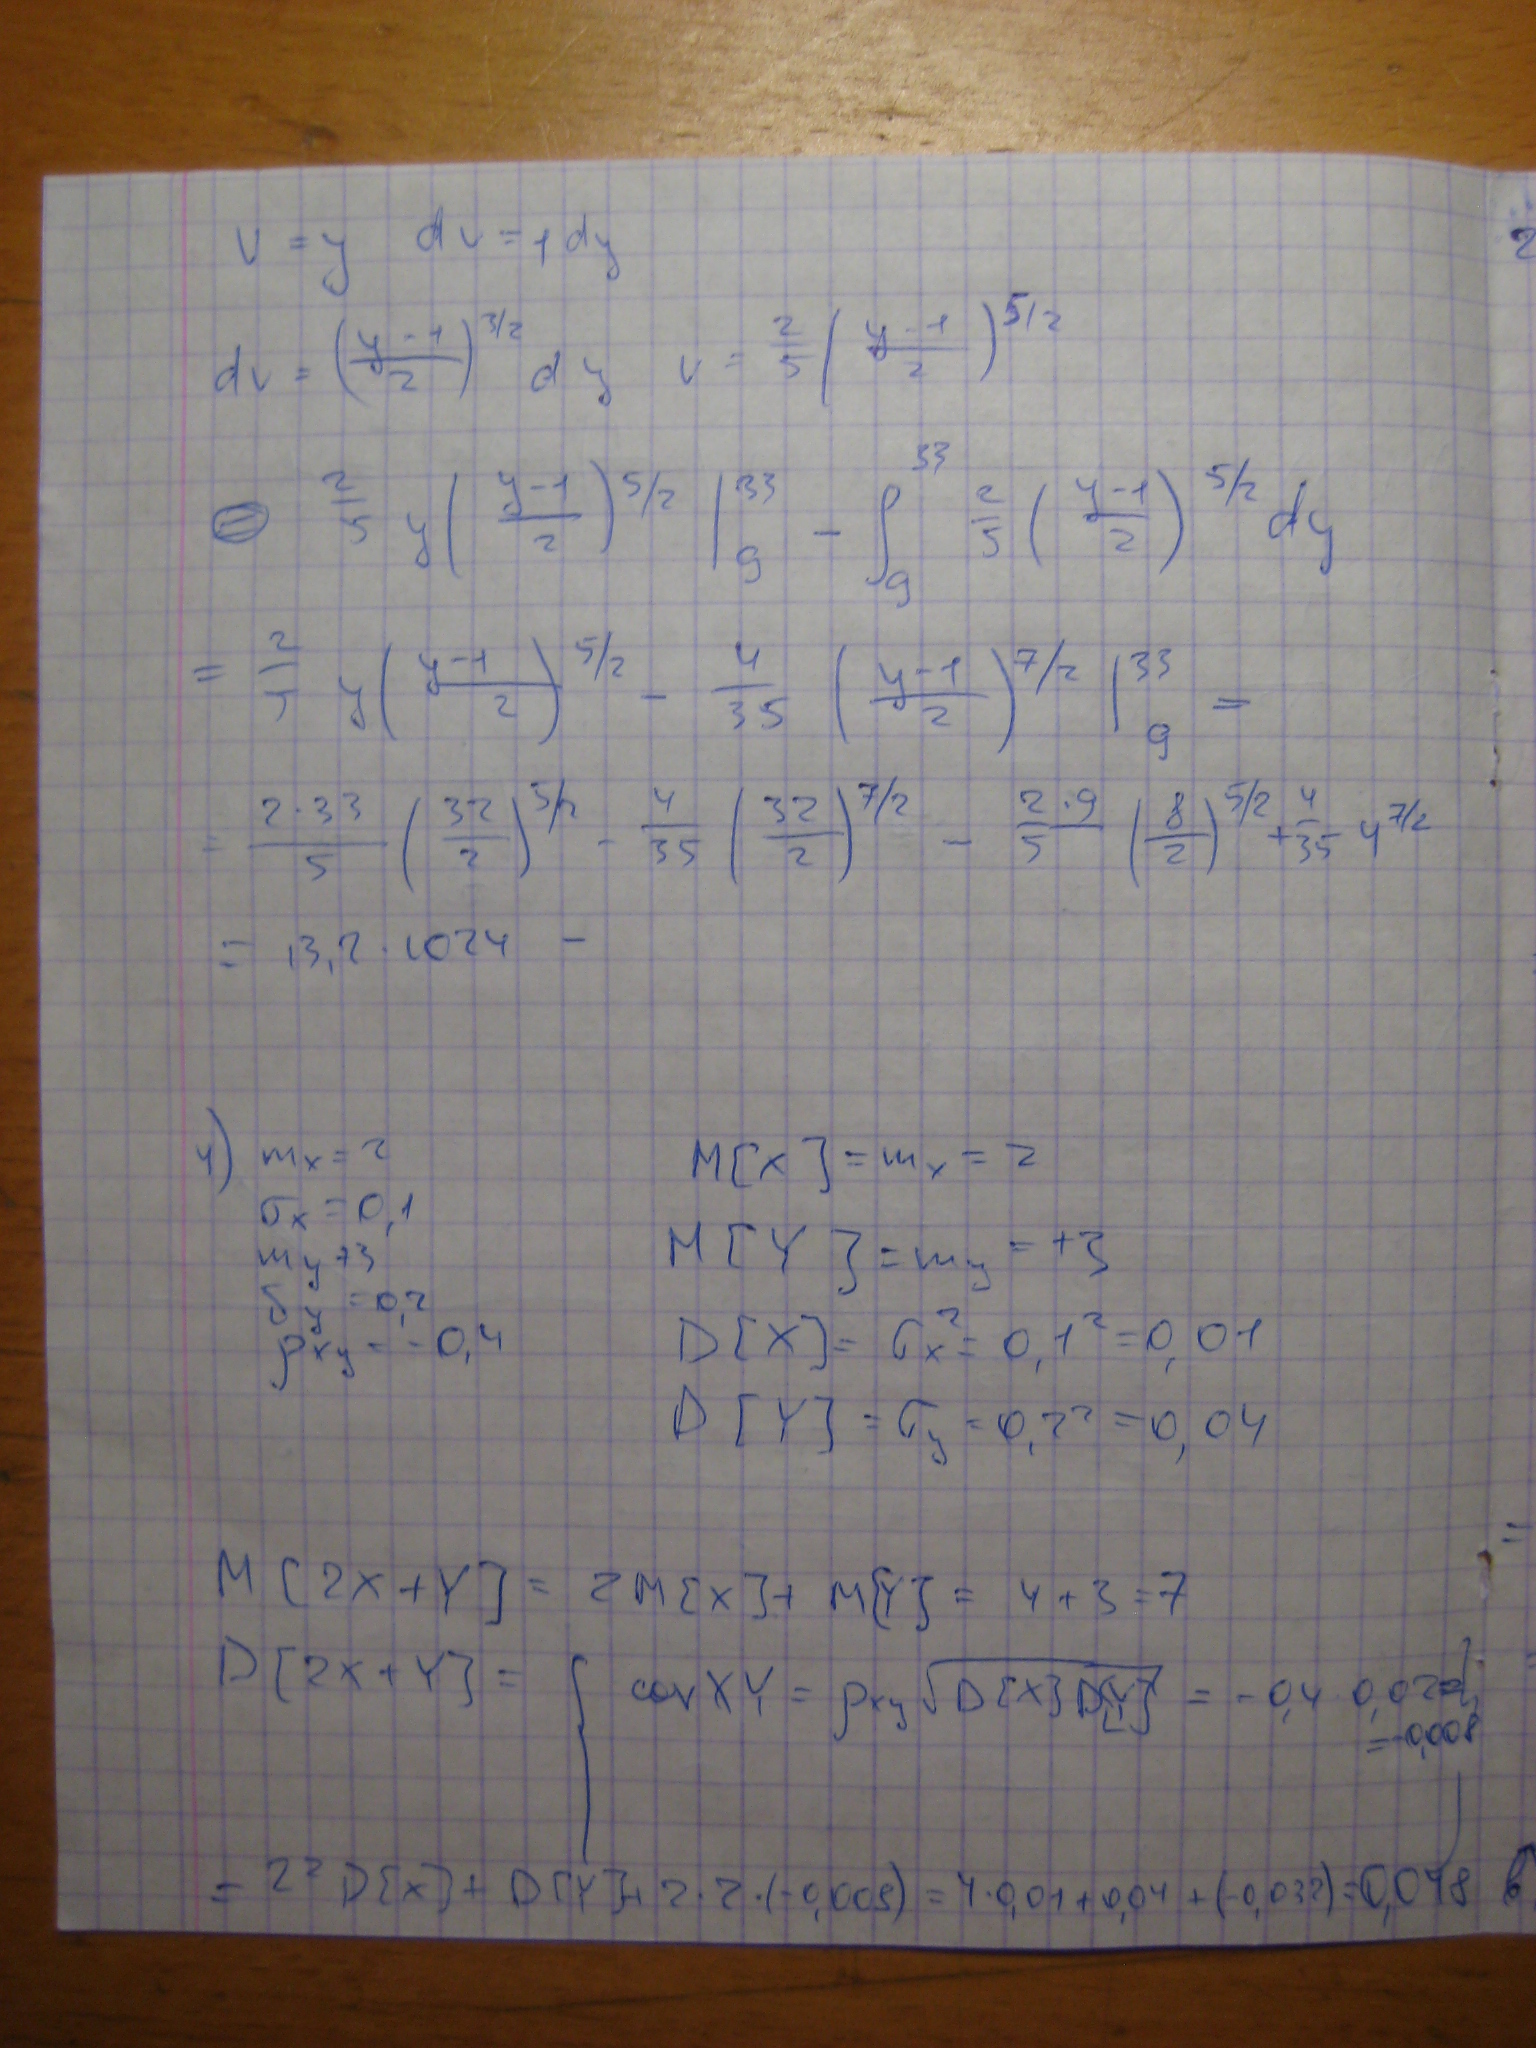 v = y dv = 1 dy
dv = ((y-1)/2)^3/2 dy v = 2/5 ((y-1)/2)^5/2
2/5 y((y-1)/2)^5/2 |_9^33 - ∫_9^33 2/5 ((y-1)/2)^5/2 dy
= y((y-1)/2)^5/2 - 4/35 ((y-1)/2)^7/2 |_9^33 =
= 2·33/5 (32/2)^5/2 - 4/35 (32/2)^7/2 - 2·9/5 (8/2)^5/2 + 4/35 4^7/2
= 13,2·1024 -
4) m_x = 2
σ_x = 0,1
m_y +3
σ_y = 0,2
ρ_xy = -0,4
M[X] = m_x = 2
M[Y] = m_y = +3
D[X] = σ_x^2 = 0,1^2 = 0,01
D[Y] = σ_y = 0,2^2 = 0,04
M[2X+Y] = 2M[X] + M[Y] = 4+3 = 7
D[2X+Y] = { cov XY = ρ_xy √D[X] D[Y] = -0,4 0,02
= -0,008
= 2^2 D[X] + D[Y] + 2·2·(-0,008) = 4·0,01 + 0,04 + (-0,032) = 0,048
2
=